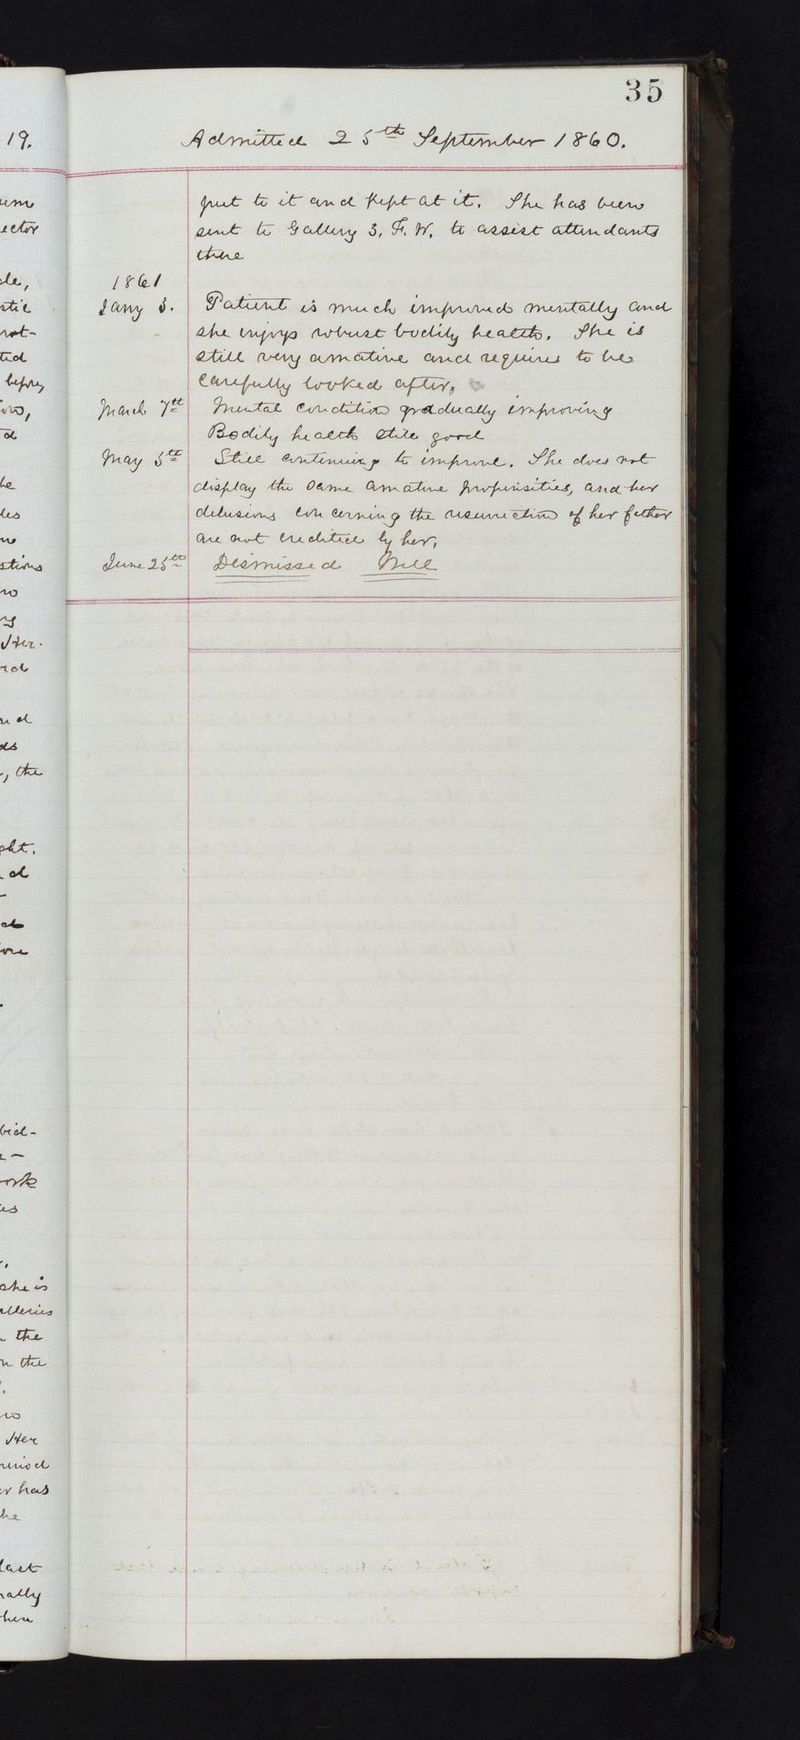 35
Admitted 25th September 1860.
put to it and kept at it. She has been
sent to Gallery 3, F. W. to assist attendants
there
1861
Jany 3. Patient is much improved mentally and
she enjoys robust bodily health. She is
still very amative and requires to be
carefully looked after.
March 7th Mental condition gradually improving
Bodily health still good
May 5th Still continuing to improve. She does not
display the same amative propensities, and her
delusions concerning the resurrection of her father
are not credited by her.
June 25th Dismissed Well
19.
ector
before
Her
, the
ght.
ork
she is
alleries
the
n the
Her
period
r has
last